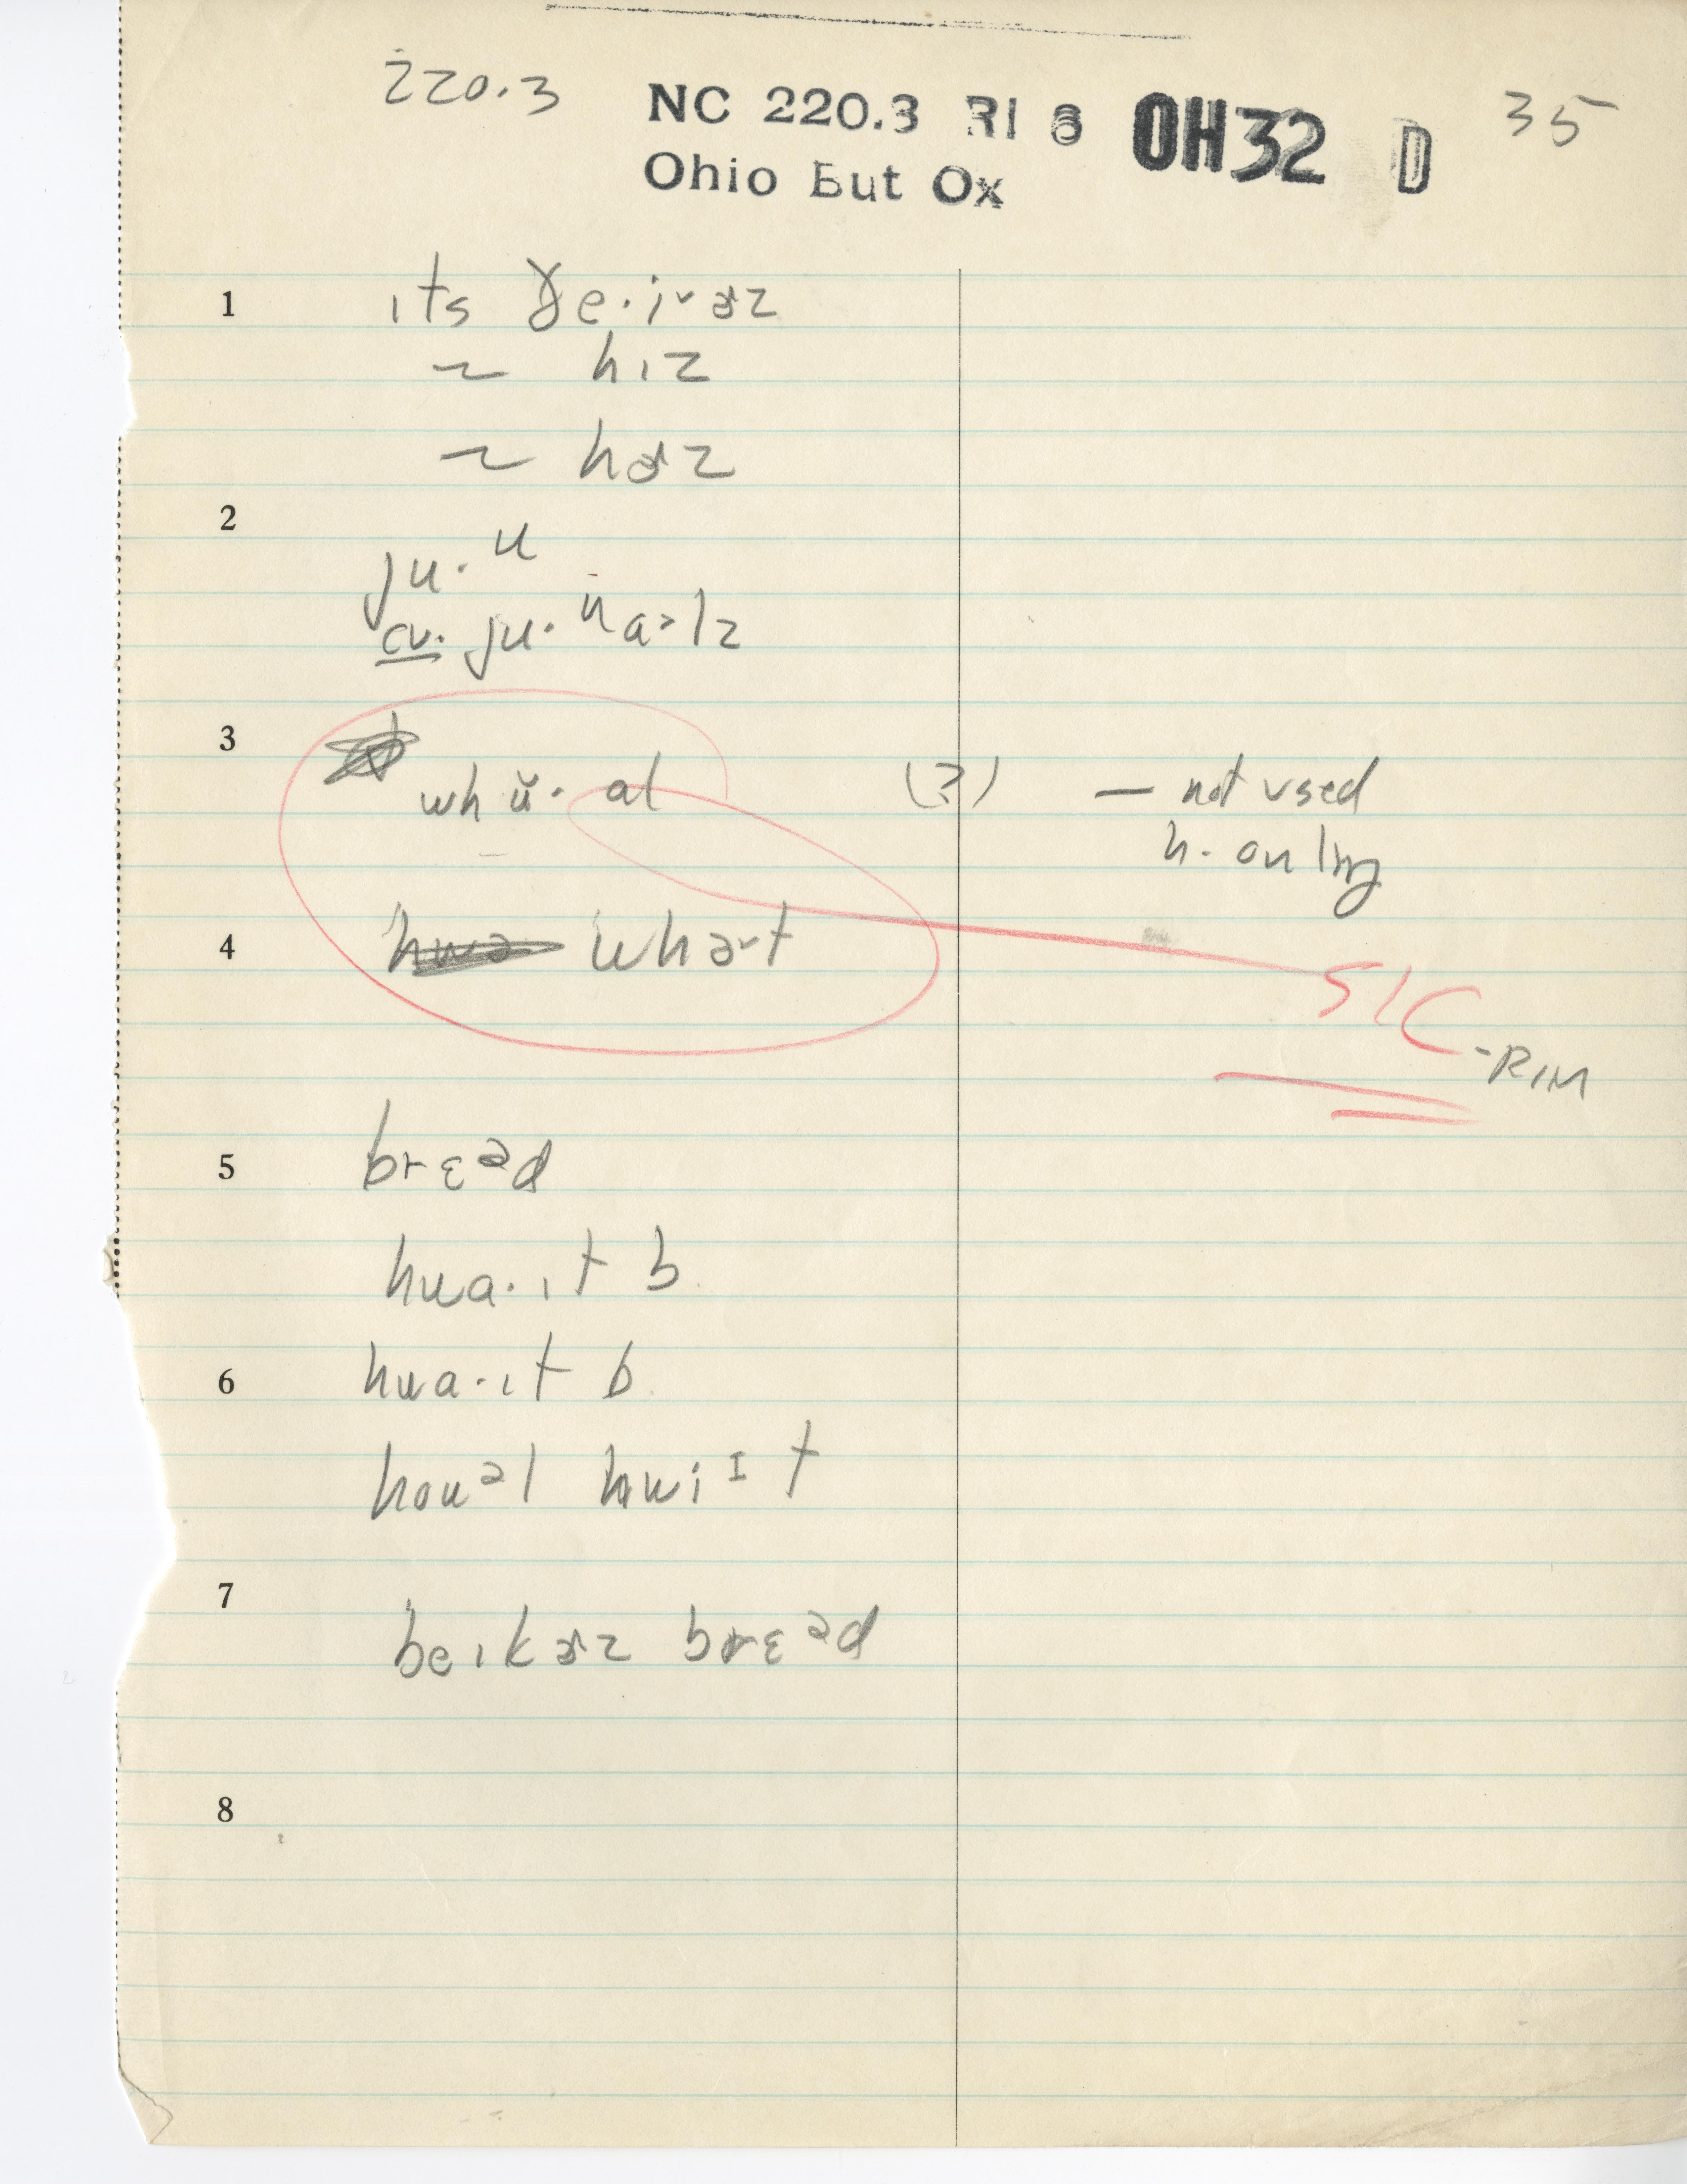 220.3 NC 220.3 RI 6 OH32 D 35
Ohio But Ox
1 ɪts ðe·i˞ɚz
~ hɪz
~ hɚz
2
ju·ᵘ
cv. ju·ᵘ ɑ>lz
3
whŭ· əl (?) — not used
h. only
4 whə˞t
SIC
-RIM
5 brɛᵊd
hwa·ɪt b.
6 hwa·ɪt b.
houᵊl hwiᴵt
7
beɪkɚz brɛᵊd
8